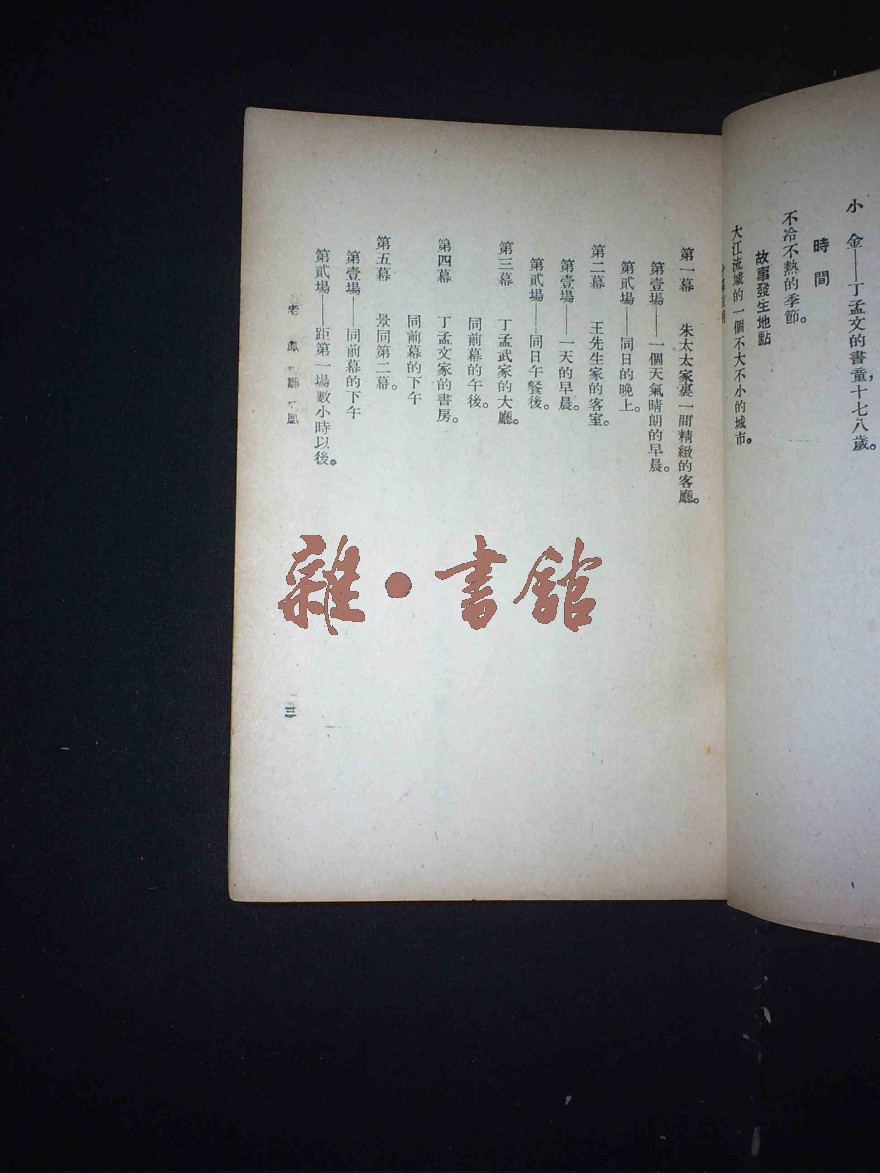 小　金——丁孟文的書童，十七八歲。
時間
不冷不熱的季節。
故事發生地點
大江流域的一個不大不小的城市。
第一幕　朱太太家裏一間精緻的客廳。
第壹場——一個天氣晴朗的早晨。
第貳場——同日的晚上。
第二幕　王先生家的客室。
第壹場——一天的早晨。
第貳場——同日午餐後。
第三幕　丁孟武家的大廳。
同前幕的午後。
第四幕　丁孟文家的書房。
同前幕的下午
第五幕　景同第二幕。
第壹場——同前幕的下午
第貳場——距第一場數小時以後。
鳳
三
雜·書館